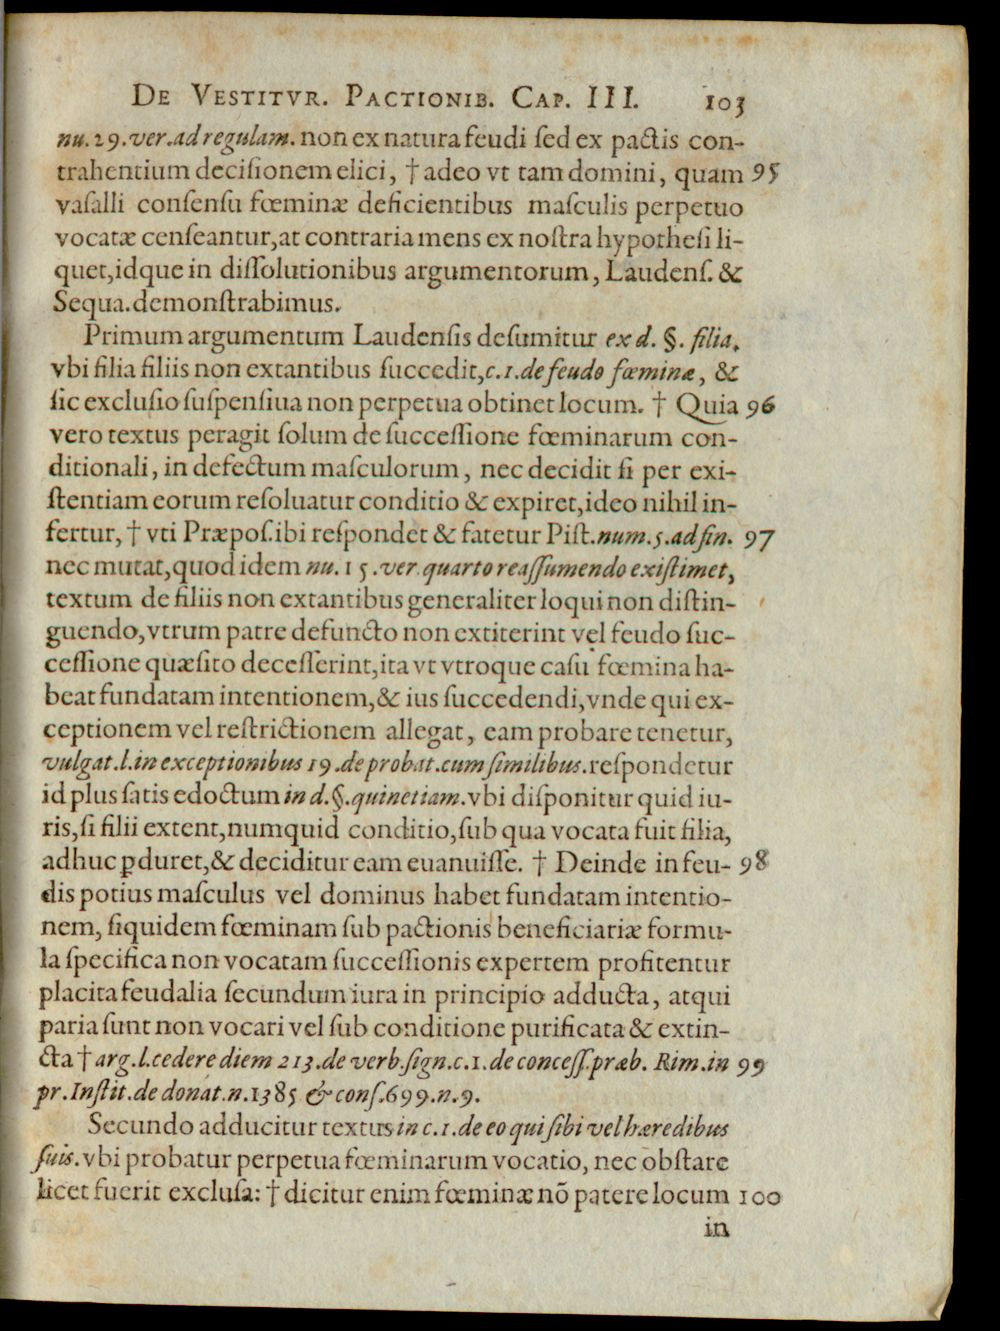 DE VESTITVR. PACTIONIB. CAP. III. 103
nu.29.ver.ad regulam. non ex natura feudi ſed ex pactis con-
trahentium deciſionem elici, † adeo vt tam domini, quam 95
vaſalli conſenſu fœminæ deficientibus maſculis perpetuo
vocatæ cenſeantur, at contraria mens ex noſtra hypotheſi li-
quet, idque in diſſolutionibus argumentorum, Laudenſ. &
Sequa. demonſtrabimus.
Primum argumentum Laudenſis deſumitur ex d. §. filia.
vbi filia filiis non extantibus ſuccedit, c.1.de feudo fœminæ, &
ſic excluſio ſuſpenſiua non perpetua obtinet locum. † Quia 96
vero textus peragit ſolum de ſucceſſione fœminarum con-
ditionali, in defectum maſculorum, nec decidit ſi per exi-
ſtentiam eorum reſoluatur conditio & expiret, ideo nihil in-
fertur, † vti Præpoſ. ibi reſpondet & fatetur Piſt. num.5.ad fin. 97
nec mutat, quod idem nu. 15.ver.quarto reaſſumendo exiſtimet,
textum de filiis non extantibus generaliter loqui non diſtin-
guendo, vtrum patre defuncto non extiterint vel feudo ſuc-
ceſſione quæſito deceſſerint, ita vt vtroque caſu fœmina ha-
beat fundatam intentionem, & ius ſuccedendi, vnde qui ex-
ceptionem vel reſtrictionem allegat, eam probare tenetur,
vulgat.l.in exceptionibus 19.de probat.cum ſimilibus. reſpondetur
id plus ſatis edoctum in d.§.quinetiam. vbi diſponitur quid iu-
ris, ſi filii extent, numquid conditio, ſub qua vocata fuit filia,
adhuc ꝑduret, & deciditur eam euanuiſſe. † Deinde in feu- 98
dis potius maſculus vel dominus habet fundatam intentio-
nem, ſiquidem fœminam ſub pactionis beneficiariæ formu-
la ſpecifica non vocatam ſucceſſionis expertem profitentur
placita feudalia ſecundum iura in principio adducta, atqui
paria ſunt non vocari vel ſub conditione purificata & extin-
cta † arg.l.cedere diem 213.de verb.ſign.c.1.de conceſſ.præb. Rim.in 99
pr.Inſtit.de donat.n.1385 & conſ.699.n.9.
Secundo adducitur textus in c.1.de eo qui ſibi vel hæredibus
ſuis. vbi probatur perpetua fœminarum vocatio, nec obſtare
licet fuerit excluſa: † dicitur enim fœminæ nõ patere locum 100
in